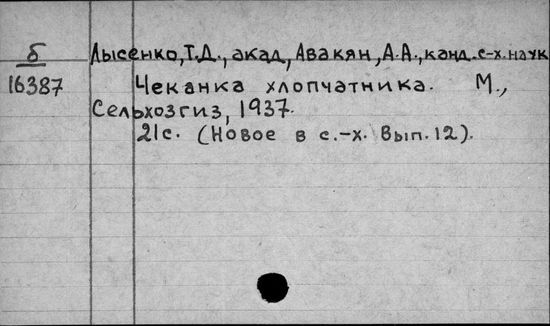 б Лысенко, Т.Д., акад, Авакян, А.А., канд. с-х. наук
16387 Чеканка хлопчатника. М.,
Сельхозгиз, 1937.
21с. (Новое в с.-х. Вып. 12).